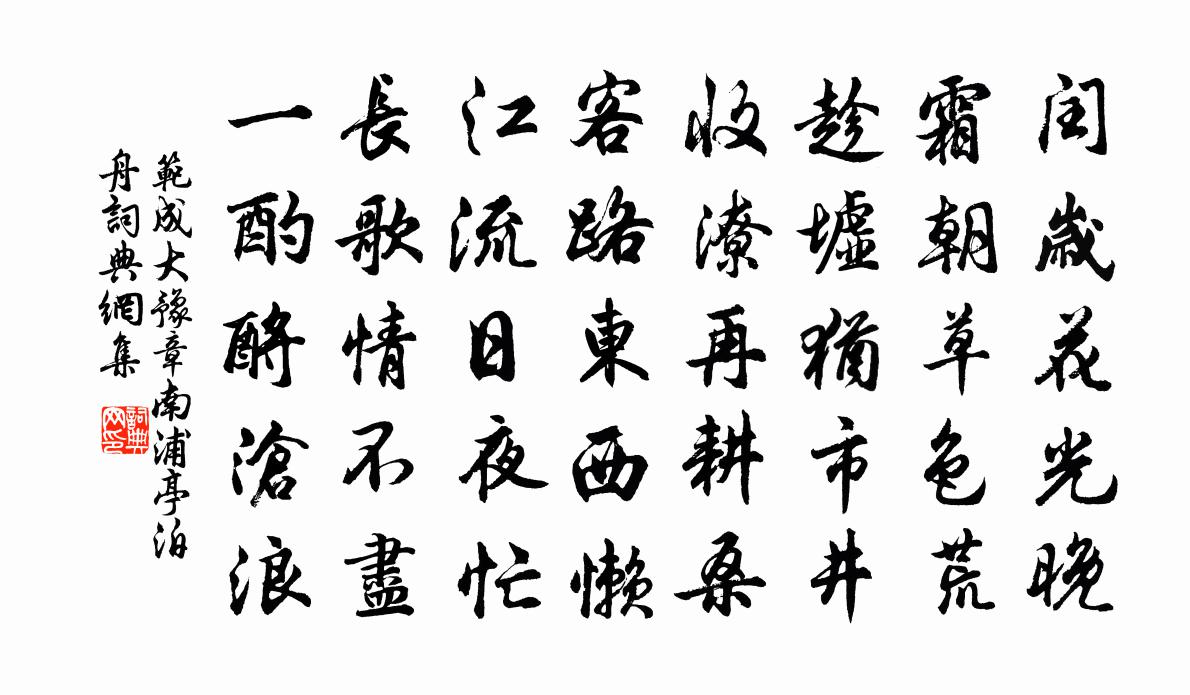 閏歲花光晚
霜朝草色荒
趁墟猶市井
收潦再耕桑
客路東西懶
江流日夜忙
長歌情不盡
一酌酹滄浪
範成大豫章南浦亭泊
舟詞典網集
詞典网印